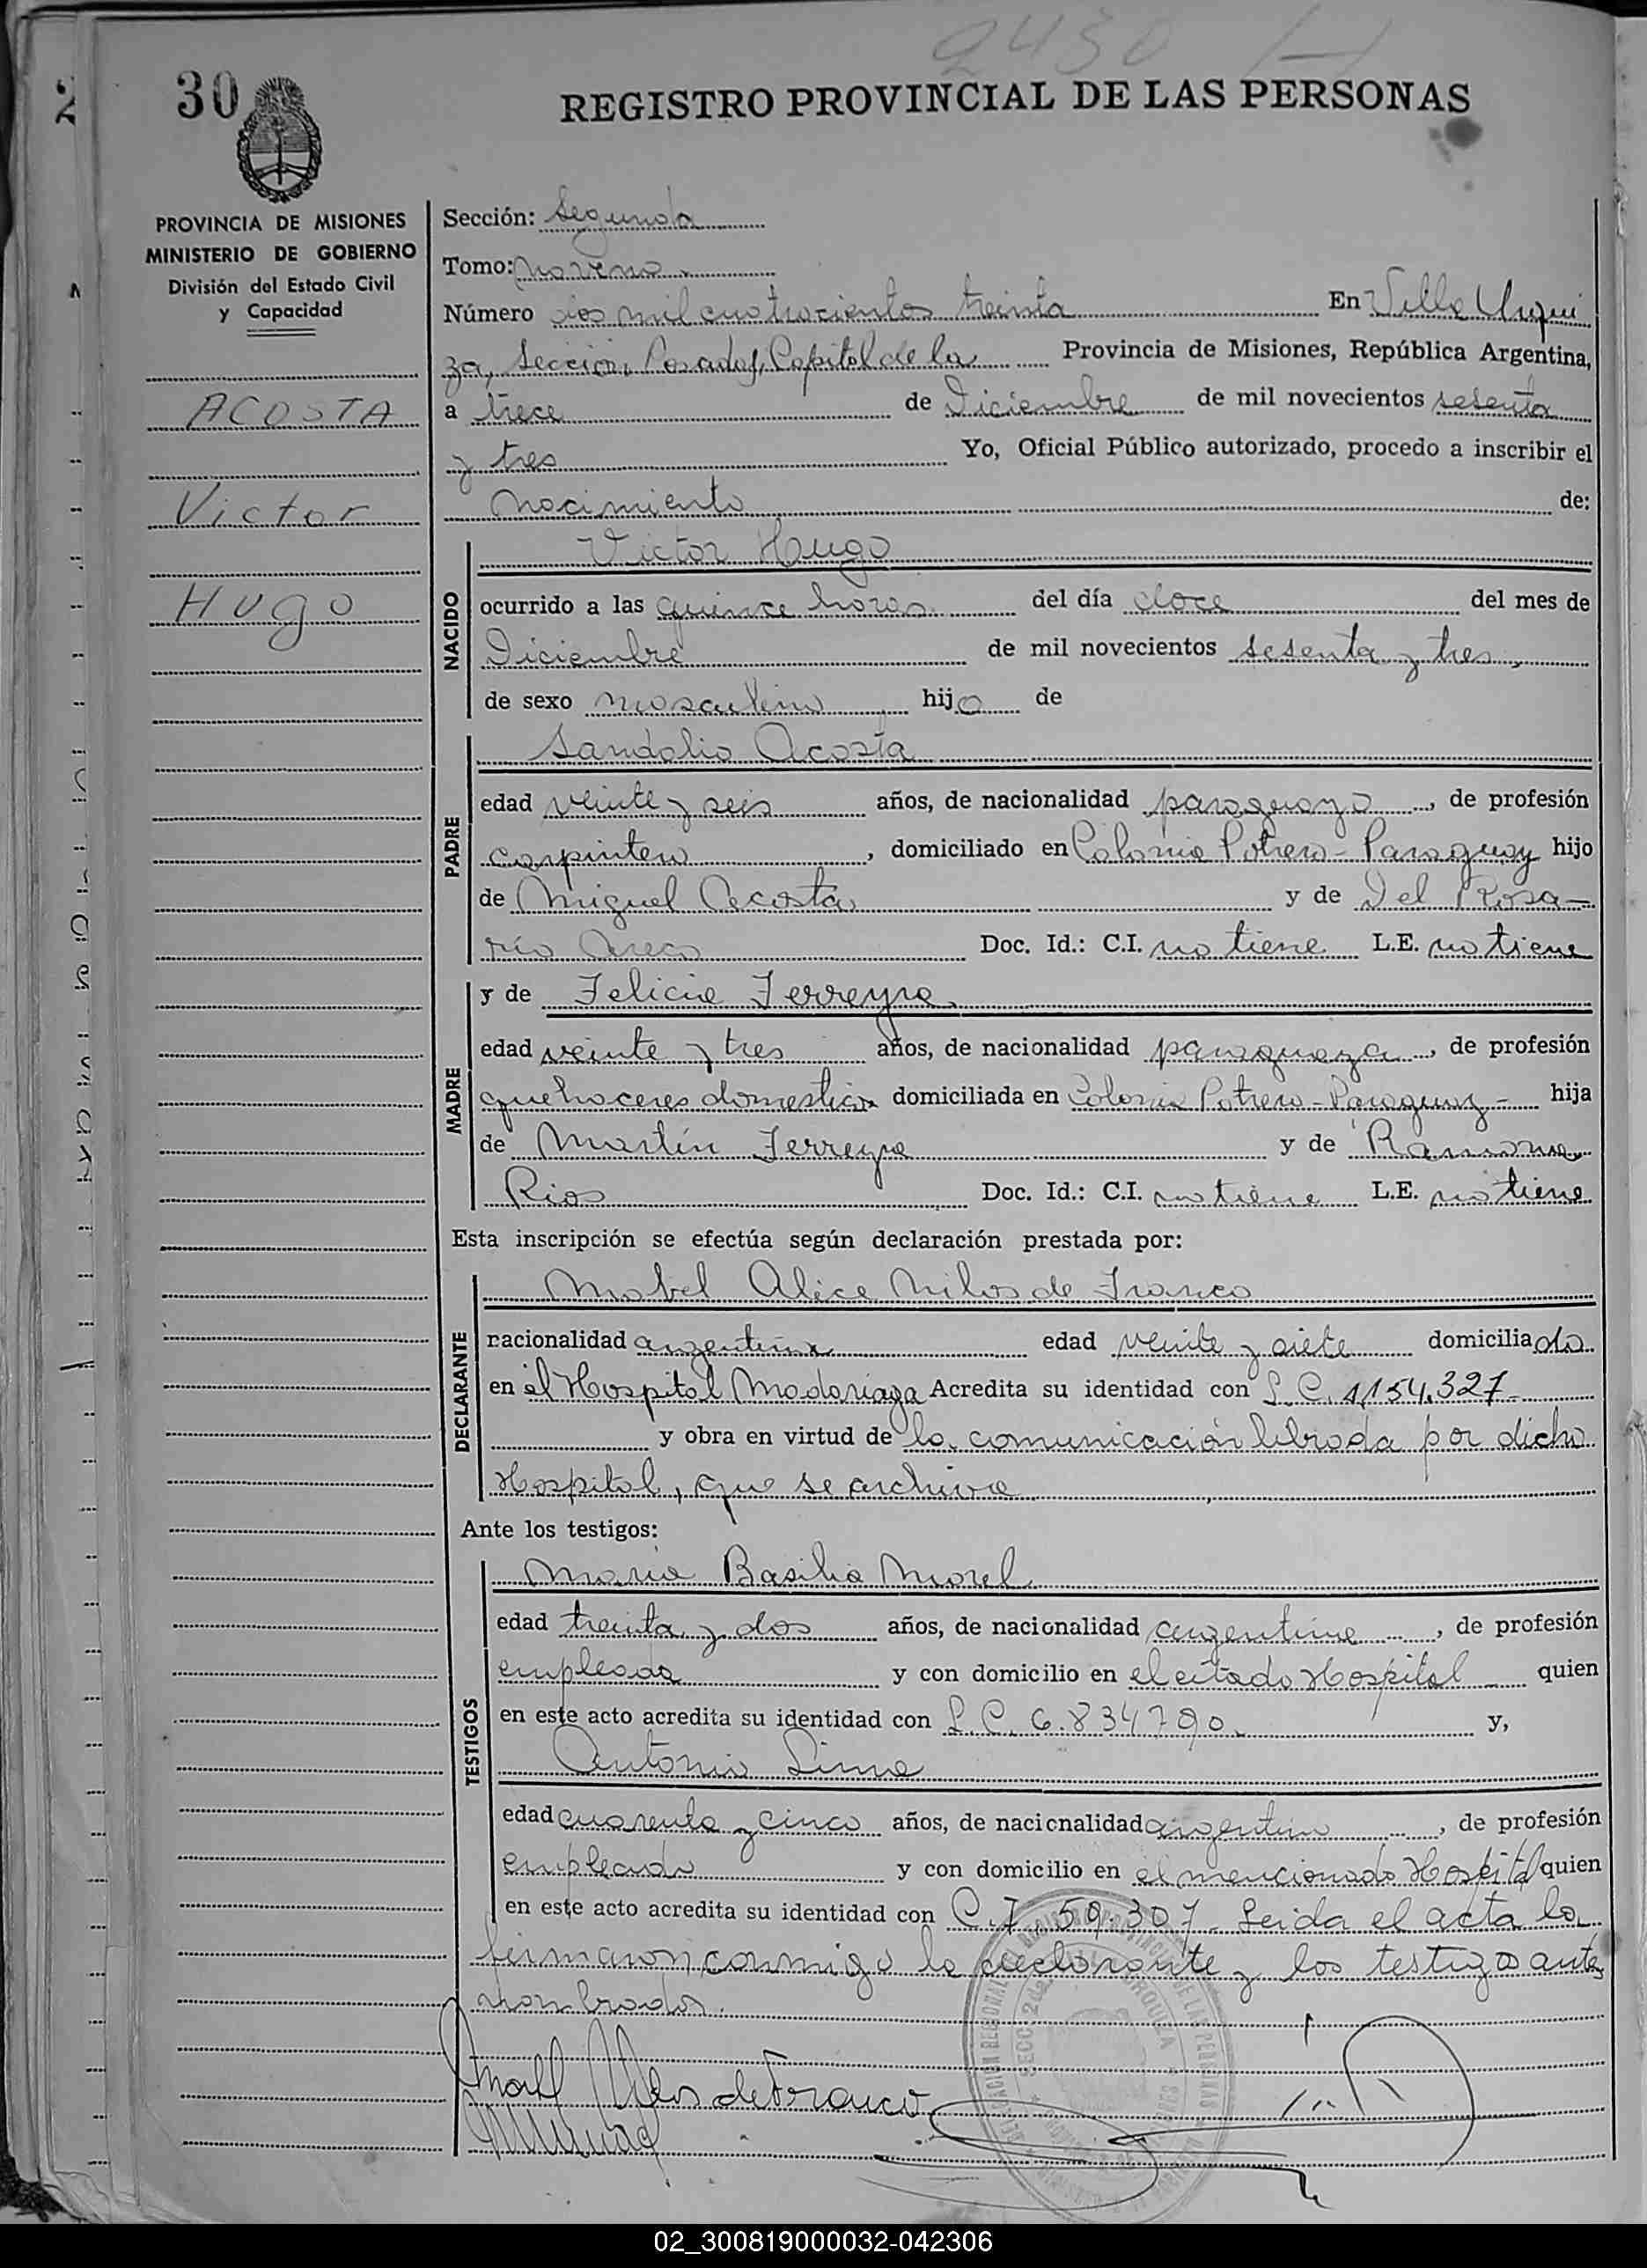 2430
30
REGISTRO PROVINCIAL DE LAS PERSONAS
PROVINCIA DE MISIONES
MINISTERIO DE GOBIERNO
División del Estado Civil
y Capacidad
ACOSTA
Victor
Hugo
Sección: Segunda
Tomo: noveno
Número dos mil cuatrocientos treinta En Villa Urqui
za, Sección Posadas, Capital de la Provincia de Misiones, República Argentina,
a trece de Diciembre de mil novecientos sesenta
y tres Yo, Oficial Público autorizado, procedo a inscribir el
nacimiento de:
NACIDO
Victor Hugo
ocurrido a las quince horas del día doce del mes de
Diciembre de mil novecientos sesenta y tres,
de sexo masculino hijo de
PADRE
Sandalio Acosta
edad veinte y seis años, de nacionalidad paraguayo, de profesión
carpintero, domiciliado en Colonia Potrero - Paraguay hijo
de Miguel Acosta y de Del Rosa-
rio Doc. Id.: C.I. no tiene L.E. no tiene
MADRE
y de Felicia Ferreyra
edad veinte y tres años, de nacionalidad paraguaya, de profesión
quehaceres domesticos domiciliada en Colonia Potrero - Paraguay - hija
de Martín Ferreyra y de Ramona
Rios Doc. Id.: C.I. no tiene L.E. no tiene
Esta inscripción se efectúa según declaración prestada por:
DECLARANTE
Mabel Alice Milos de Franco
nacionalidad argentina edad veinte y siete domiciliada
en el Hospital Madariaga Acredita su identidad con L.C. 1154.327
y obra en virtud de la comunicación librada por dicho
Hospital, que se archiva
Ante los testigos:
TESTIGOS
Maria Basilia Morel
edad treinta y dos años, de nacionalidad argentina, de profesión
empleada y con domicilio en el citado Hospital quien
en este acto acredita su identidad con L.C. 6.834790 y,
Antonio Lima
edad cuarenta y cinco años, de nacionalidad argentino, de profesión
empleado y con domicilio en el mencionado Hospital quien
en este acto acredita su identidad con C.I. 59.307. Leida el acta la
firmaron conmigo la declarante y los testigos antes
nombrados.
de Franco
02_300819000032-042306